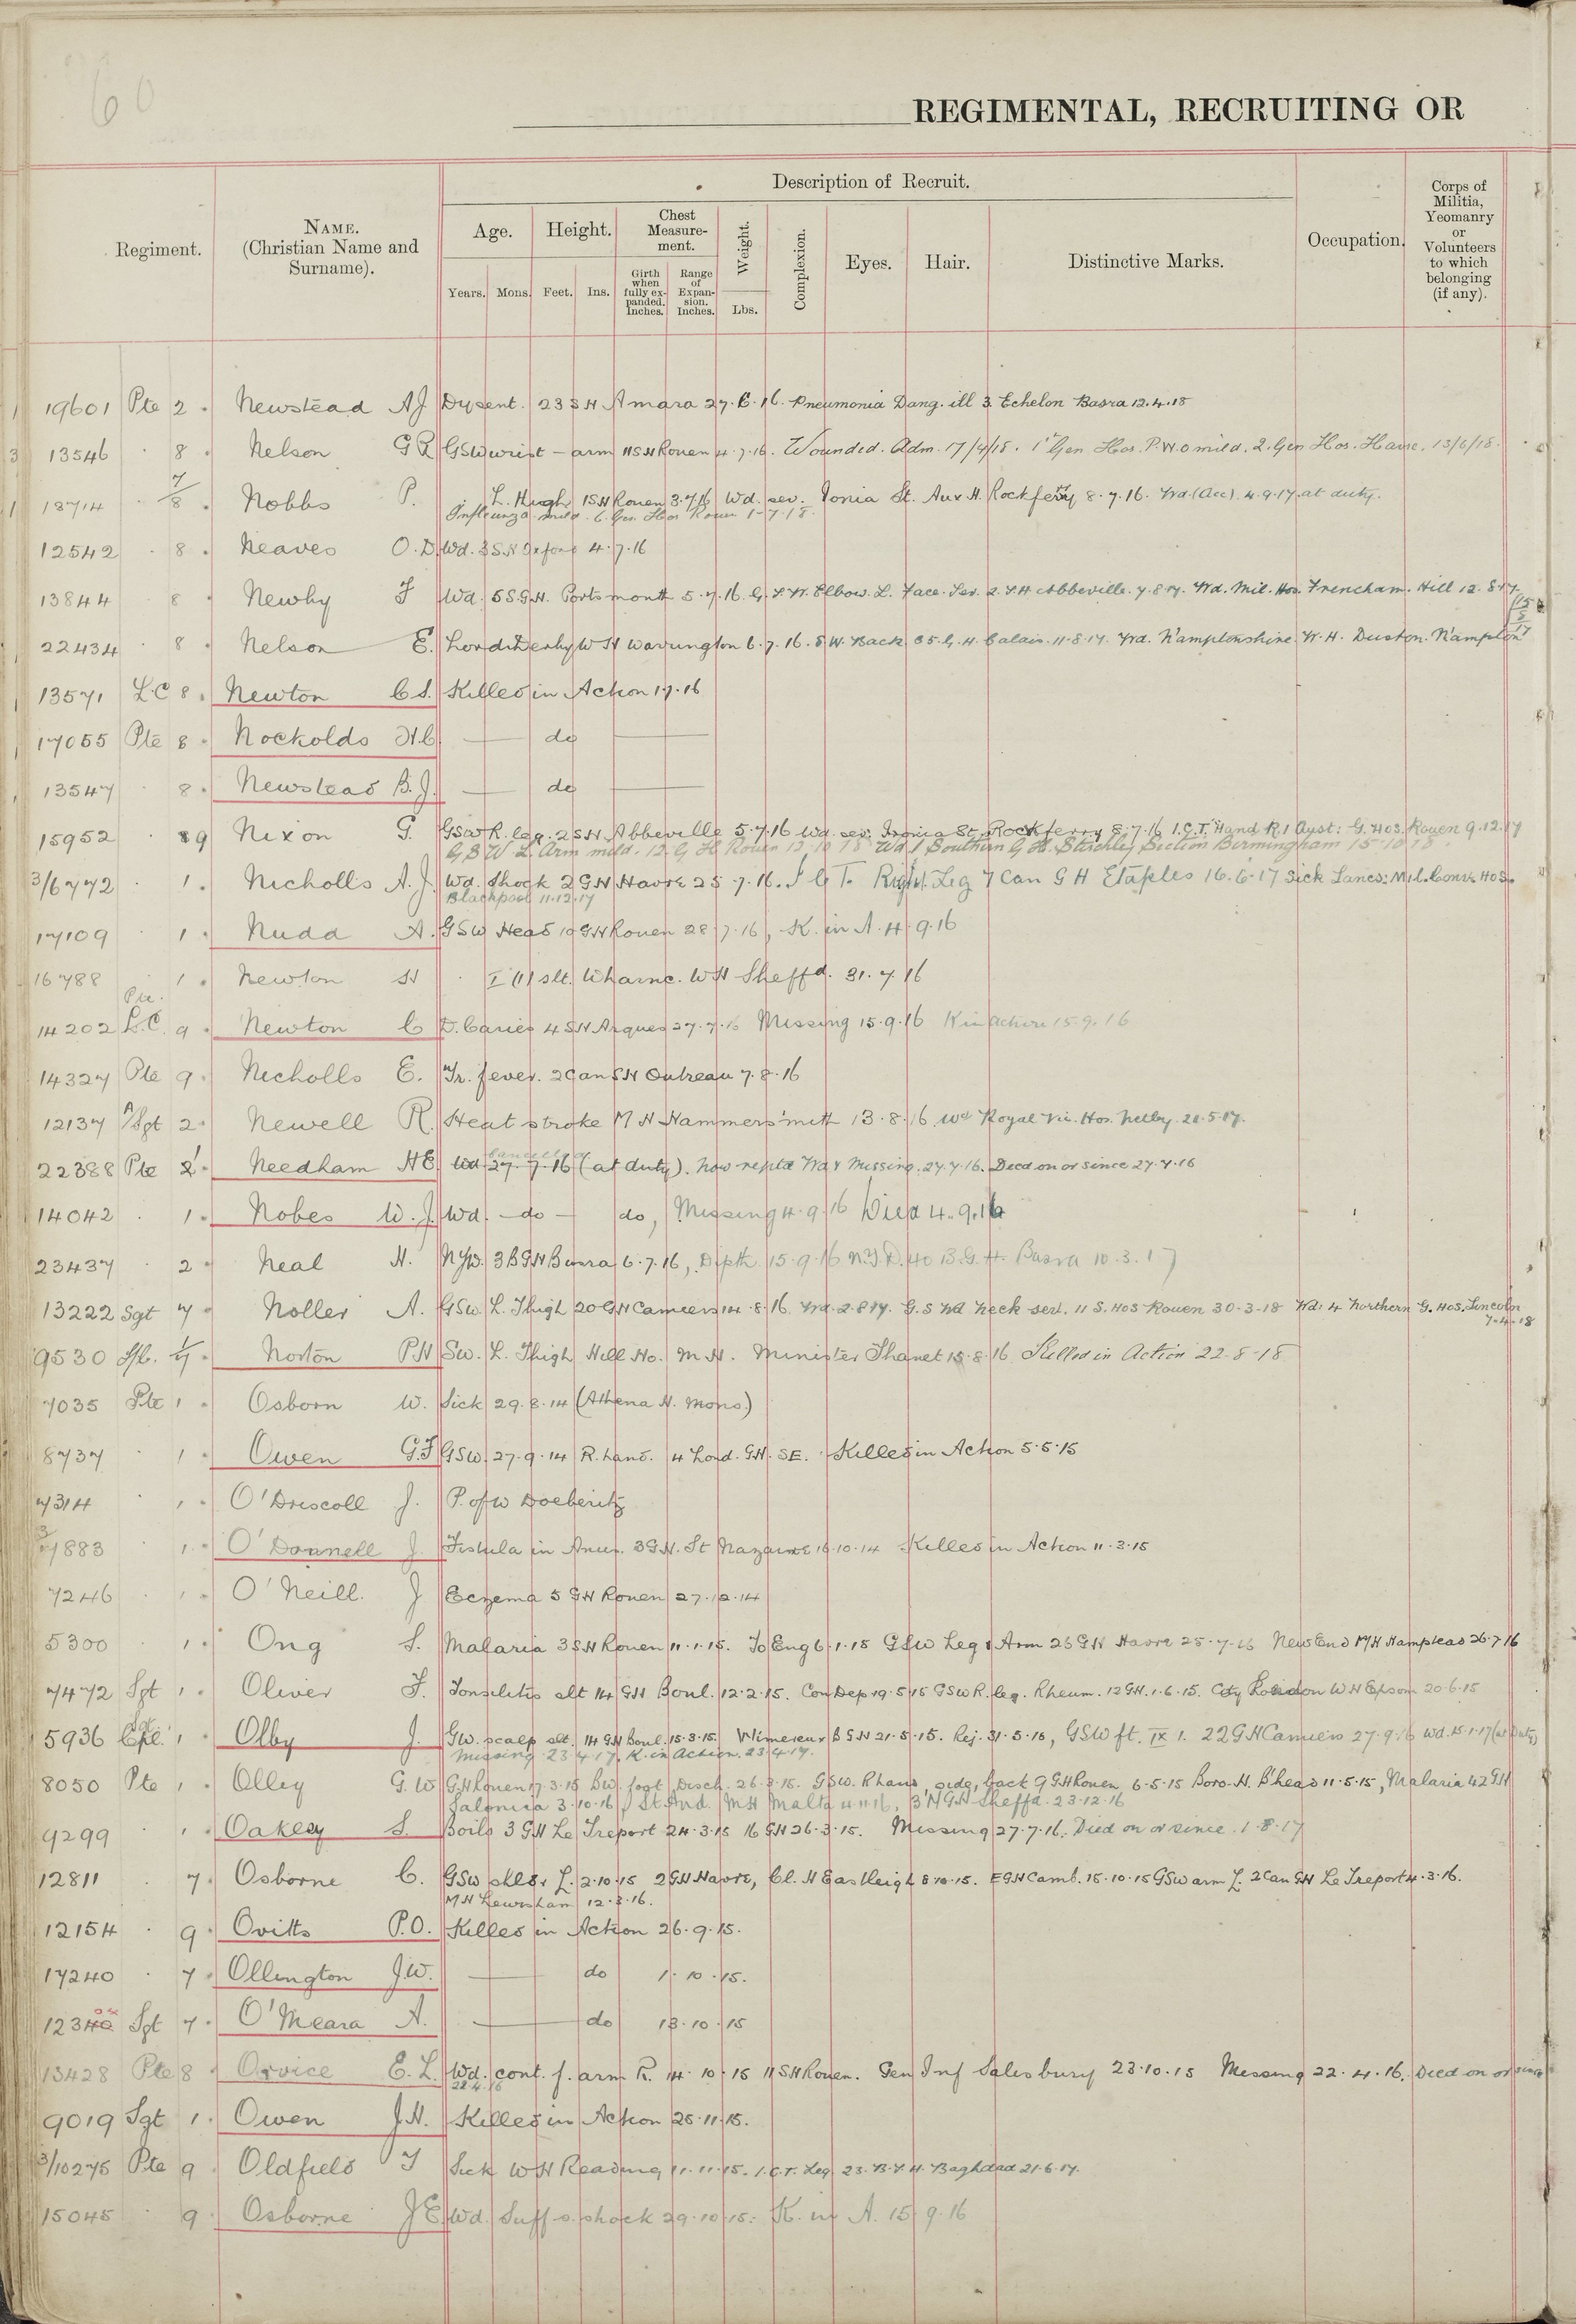 60
REGIMENTAL, RECRUITING OR
Regiment.
NAME.
(Christian Name and
Surname).
Description of Recruit.
Age.
Height.
Chest
Measure-
ment.
Weight.
Complexion.
Eyes.
Hair.
Distinctive Marks.
Occupation.
Corps of
Militia,
Yeomanry
or
Volunteers
to which
belonging
(if any).
Years.
Mons.
Feet.
Ins.
Girth
when
fully ex-
panded.
Inches.
Range
of
Expan-
sion.
Inches.
Lbs.
19601 Pte 2 . Newstead AJ Dysent. 23 S H Amara 27.6.16. Pneumonia Dang. ill 3 Echelon Basra 12.4.18
13546 . 8 . Nelson G R GSW wrist - arm 11 S H Rouen 4.7.16. Wounded. Adm. 17/4/18. 1st Gen Hos. P.W.O mild. 2. Gen Hos. Havre. 13/6/18.
18714 7/8 . Nobbs P. L. Thigh 1 S H Rouen 3.7.16 Wd. sev. Ionia St. Aux H. Rockferry 8.7.16. Wd (Acc) 4.9.17 at duty.
Influenza mild. 6. Gen Hos Rouen 1-7-18.
12542 . 8 . Neaves O. D. Wd. 3 S.H Oxford 4.7.16
13844 8 . Newby F Wd. 5 S.G.H. Portsmouth 5.7.16. G.S.W. Elbow. L. Face. Sev. 2 S.H Abbeville. 7.8.17. Wd. Mil. Hos. Frencham. Hill 12.8.17.
22434 . 8 . Nelson E. Lord Derby W H Warrington 6.7.16. S.W. Back 35.G.H. Calais. 11.8.17. Wd. N'amptonshire. W.H. Duston. N'ampton 15/8/17
13571 L.C 8 . Newton C S. Killed in Action 1.7.16
17055 Pte 8 . Nockolds H.C — do —
13547 . 8 . Newstead B. J. — do —
15952 . 89 Nixon G. GSW R. leg. 2 S H Abbeville 5.7.16 Wd. sev. Ionia St. Rockferry 8.7.16 I.C.T. Hand R. 1 Aust: G. Hos. Rouen 9.12.17
G S W L. Arm mild. 12. G H Rouen 12 10 18 Wd 1 Southern G H. Stirchley Section Birmingham 15-10-18.
3/6772 . 1 . Nicholls A. J. Wd. Shock 2 G H Havre 25.7.16. I C T. Right Leg 7 Can G H Etaples 16.6.17 Sick Lancs: Mil. Conv. Hos.
Blackpool 11.12.17
17109 . 1 . Nudd A. GSW Head 10 G H Rouen 28.7.16, K. in A. 4.9.16
16788 1 . Newton H slt. Wharnc. W H Sheffd. 31.7.16
Pte.
14202 L.C. 9 . Newton C D. Caries 4 S H Arques 27.7.16 Missing 15.9.16 K in Action 15.9.16
14327 Pte 9 . Nicholls E. Tr. fever. 2 Can S H Outreau 7.8.16
12137 A/Sgt 2 . Newell R. Heat stroke M H Hammersmith 13.8.16. Wd Royal Vic. Hos. Netley. 20.5.17.
22388 Pte 2 1 . Needham H E Wd 27.7.16 (at duty). Now reptd Wd & Missing. 27.7.16. Decd on or since 27.7.16
cancelled
14042 . 1 . Nobes W. J. Wd. — do — do, Missing 4.9.16 Died 4.9.16
23437 . 2 . Neal H. N.Y.D. 3 B G H Basra 6.7.16, Dipth. 15.9.16 N.Y.D. 40 B.G.H. Basra 10.3.17
13222 Sgt 7 . Noller A. GSW. L. Thigh 20 G H Camiers 14.8.16. Wd. 2.8.17. G.S Wd Neck sevl. 11 S. Hos Rouen 30-3-18 Wd: 4 Northern G. Hos. Lincoln
7-4-18
9530 1/7 . Norton P H SW. L. Thigh Hill Ho. M H. Minister Thanet 15.8.16 Killed in Action 22-8-18
7035 Pte 1 . Osborn W. Sick 29.8.14 (Athena H. Mons)
8737 . 1 . Owen G. F GSW. 27.9.14 R. hand. 4 Lond. G H. SE. Killed in Action 5.5.15
7314 . 1 . O'Driscoll J. P. of W Doeberitz
3/7883 1 . O'Donnell J. Fistula in Anus. 3 G H. St Nazaire 16.10.14 Killed in Action 11.3.15
7246 . 1 . O'Neill. J Eczema 5 G H Rouen 27.12.14
5300 . 1 . Ong S. Malaria 3 S H Rouen 11.1.15. To Eng 6.1.15 GSW Leg & Arm 26 G H Havre 25.7.16 New End M H Hampstead 26.7.16
7472 Sgt 1 . Oliver F. Tonsilitis slt 14 G H Boul. 12.2.15. Con Dep 19.5.15 GSW R. leg. Rheum. 12 G H. 1.6.15. Cty London W H Epsom 20.6.15
5936 Cpl. 1 . Olby J. GW. scalp slt. 14 G H Boul. 15.3.15. Wimereux B G H 21.5.15. Rej. 31.5.15, GSW ft. IX 1. 22 G H Camiers 27.9.16 Wd. 15.1.17 (at Duty)
Missing 23.4.17. K. in Action. 23.4.17.
8050 Pte 1 . Olley G. W G H Rouen 17.3.15 BW. foot Disch. 26.3.15. GSW. R hand, side, back 9 G H Rouen 6.5.15 Boro. H. B'head 11.5.15, Malaria 42 G H
Salonica 3.10.16 St And. M H Malta 4.11.16, 3 N G H Sheffd. 23.12.16
9299 1 . Oakley S. Boils 3 G H Le Treport 24.3.15 16 G H 26.3.15. Missing 27.7.16. Died on or since. 1.8.17
12811 7 . Osborne C. GSW shldr L. 2.10.15 2 G H Havre, Cl. H Eastleigh 8.10.15. E G H Camb. 15.10.15 GSW arm L. 2 Can G H Le Treport 4.3.16.
M H Lewisham 12.3.16.
12154 . 9 . Ovitts P. O. Killed in Action 26.9.15.
17240 . 7 . Ollington J. W. — do 1.10.15.
12340 Sgt 7 . O'Meara A. — do 13.10.15
13428 Pte 8 . Orvice E. L. Wd. cont. f. arm R. 14.10.15 11 S H Rouen. Gen Inf Salisbury 23.10.15 Missing 22.4.16. Died on or since
22.4.16
9019 Sgt 1 . Owen J. H. Killed in Action 25.11.15.
3/10275 Pte 9 . Oldfield T Sick W H Reading 11.11.15. I.C.T. Leg 23. B.S.H. Baghdad 21.6.17.
15045 . 9 . Osborne J E Wd. Suff s. shock 29.10.15. K. in A. 15.9.16